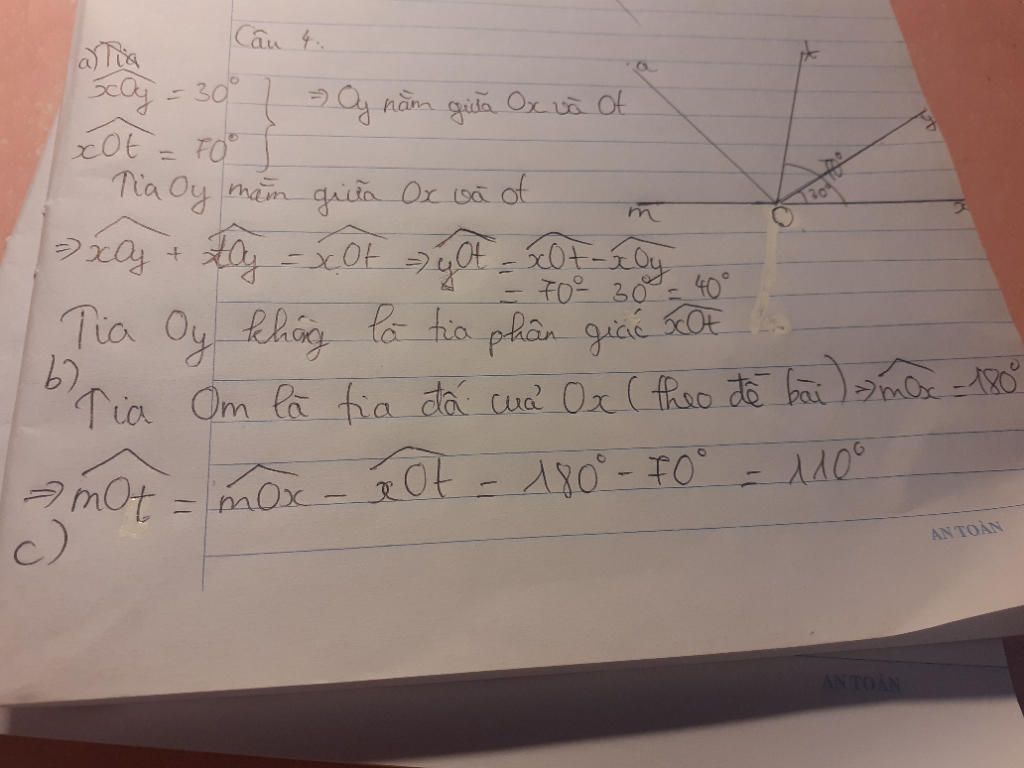 Câu 4.
a) Tia
xOy = 30°
xOt = 70°
⇒ Oy nằm giữa Ox và Ot
Tia Oy mằn giữa Ox và Ot
⇒ xOy + tOy = xOt ⇒ yOt = xOt - xOy
= 70° - 30° = 40°
Tia Oy không là tia phân giác xOt
b)
Tia Om là tia đấ cuả Ox (theo đề bài) ⇒ mOx = 180°
⇒ mOt = mOx - xOt = 180° - 70° = 110°
c)
a
t
y
70°
30°
m
O
x
AN TOÀN
AN TOÀN